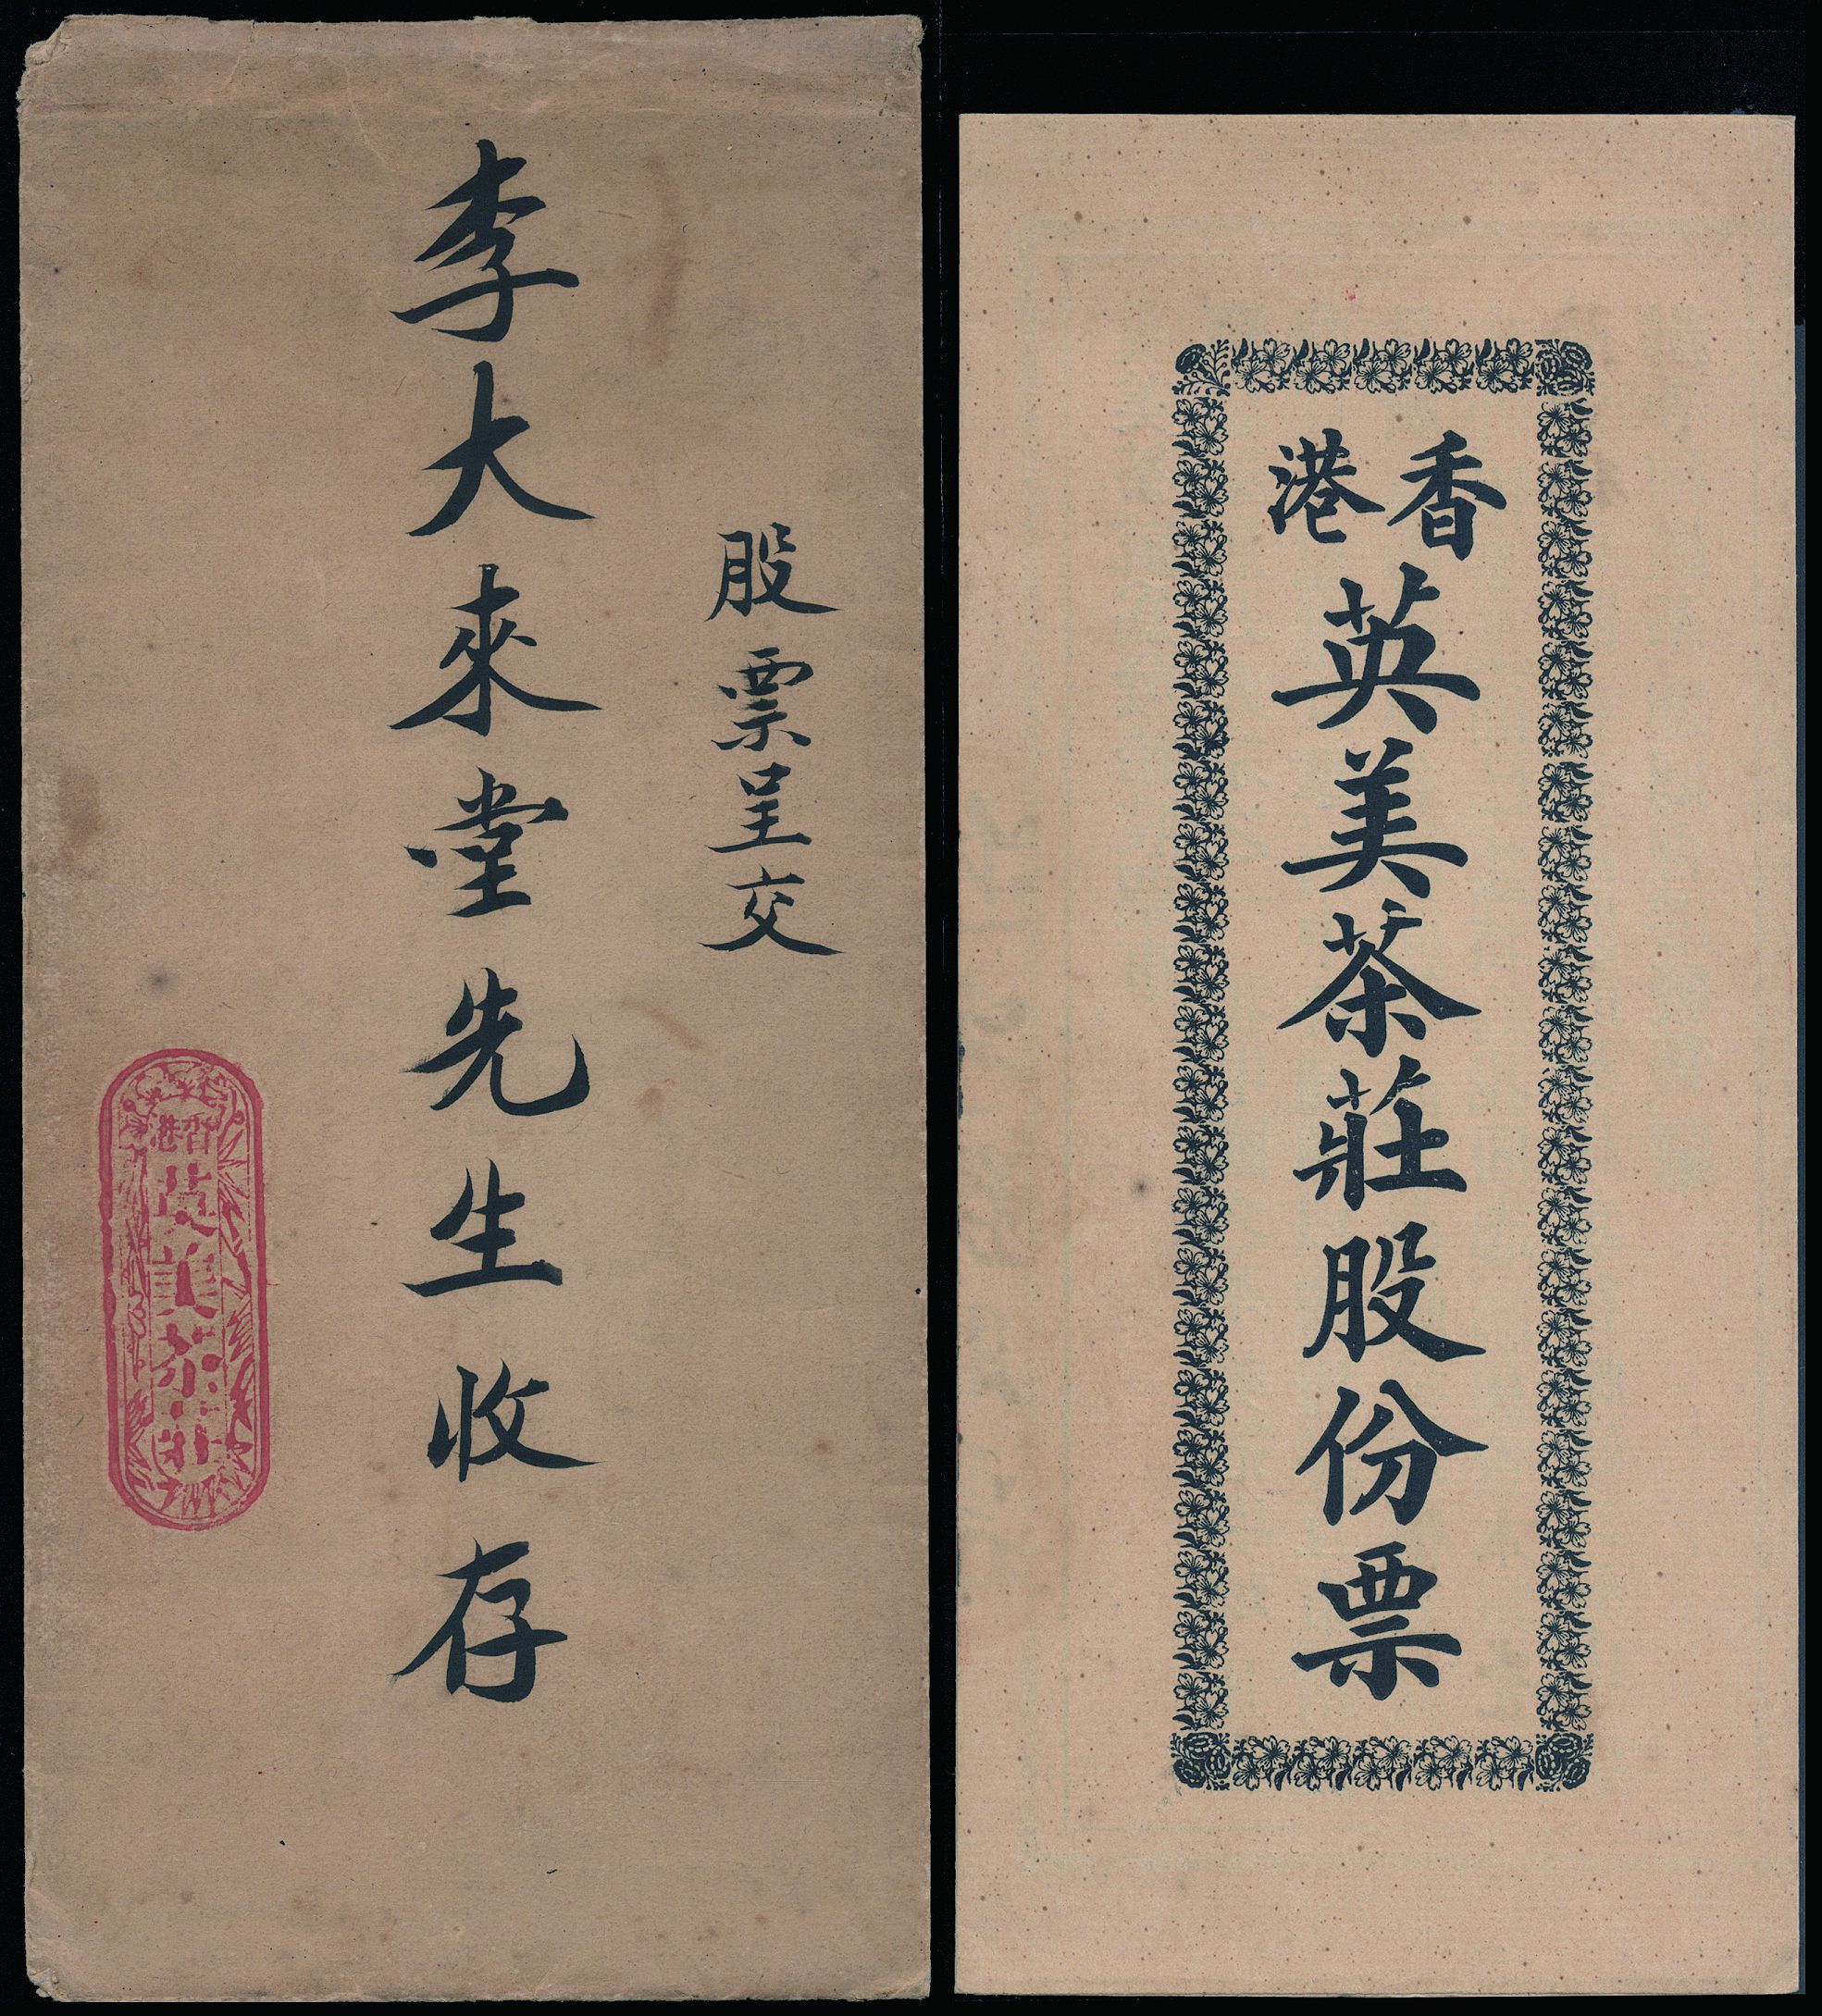 股票呈交
李大來堂先生收存
香港
英美茶莊
香港
英美茶莊股份票